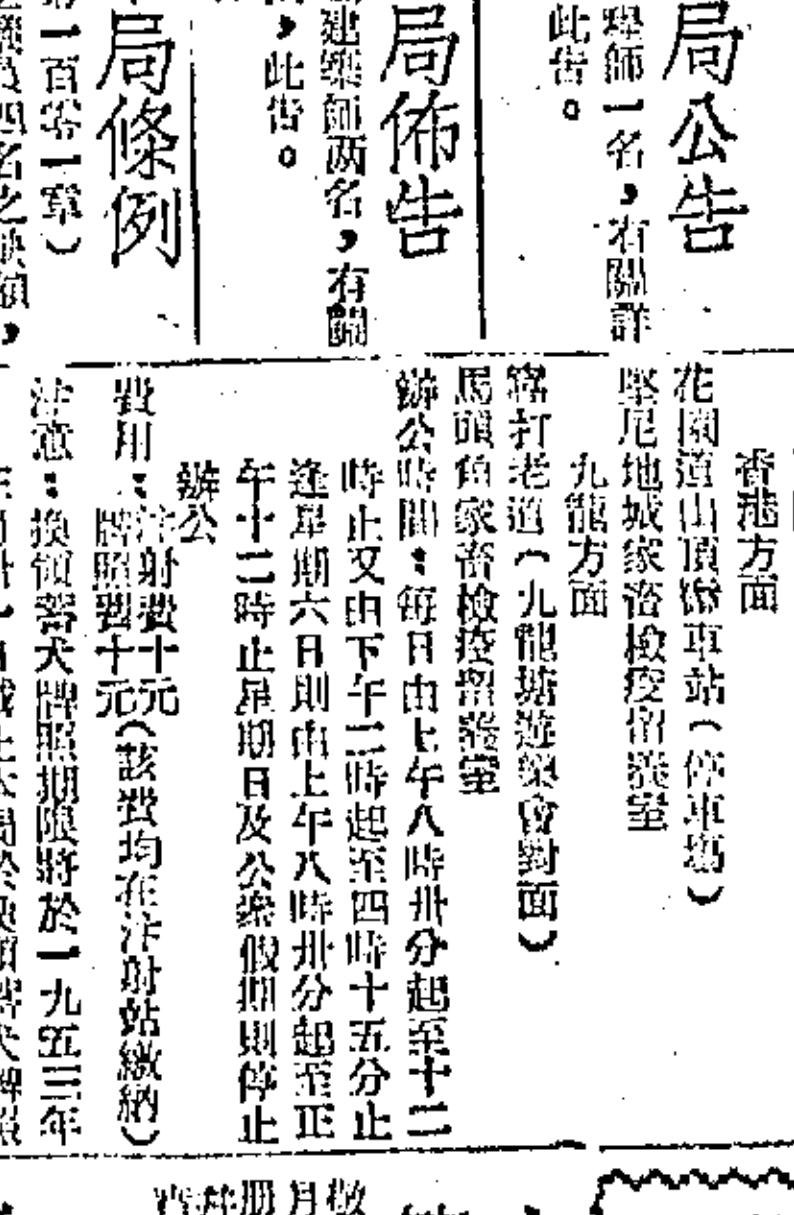 局公告
程師一名，有關詳
此告。
局佈告
建築師两名，有關
，此告。
局條例
一百零一章）
員四名之缺額，
香港方面
花園道山頂纜車站（停車塲）
堅尼地城家畜檢疫留養室
九龍方面
窩打老道（九龍塘遊樂會對面）
馬頭角家畜檢疫留養室
辦公時間：每日由上午八時卅分起至十二
時止又由下午二時起至四時十五分止
逢星期六日則由上午八時卅分起至正
午十二時止星期日及公衆假期則停止
辦公
費用：注射費十元
牌照費十元（該費均在注射站繳納）
注意：換領畜犬牌照期限將於一九五三年